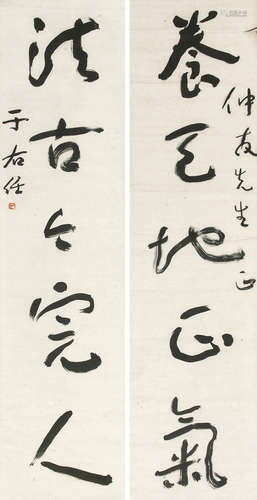 養天地正氣
仲友先生正
法古今完人
于右任